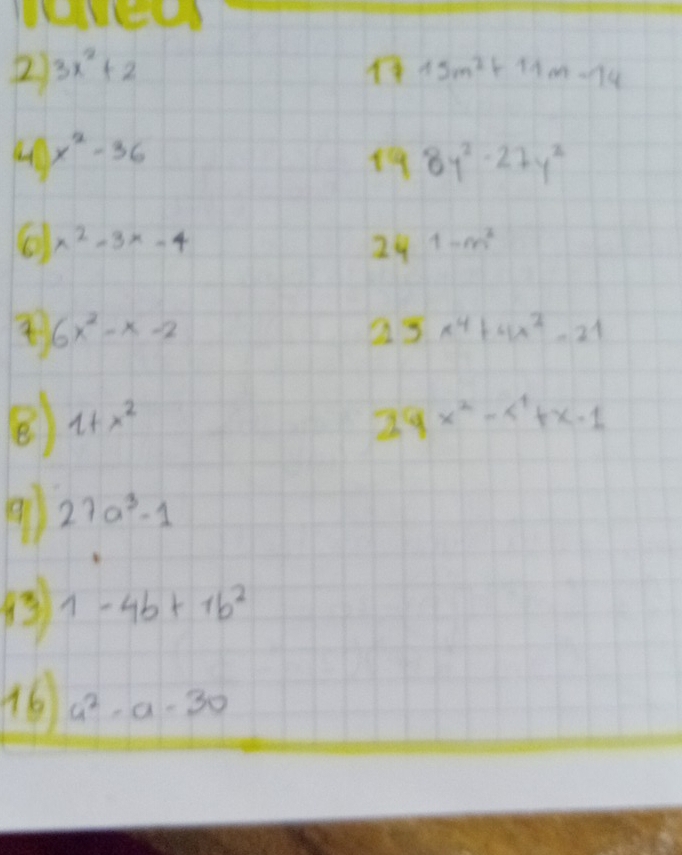 Tarea
2) 3x² + 2
4) x² - 36
6) x² - 3x - 4
7) 6x² - x - 2
8) 1 + x²
9) 27a³ - 1
13) 1 - 4b + 1b²
16) a² - a - 30
17 15m² + 11m - 14
19 8y² - 27y²
24 1 - m²
25 x⁴ + 4x² - 21
29 x² - + x - 1